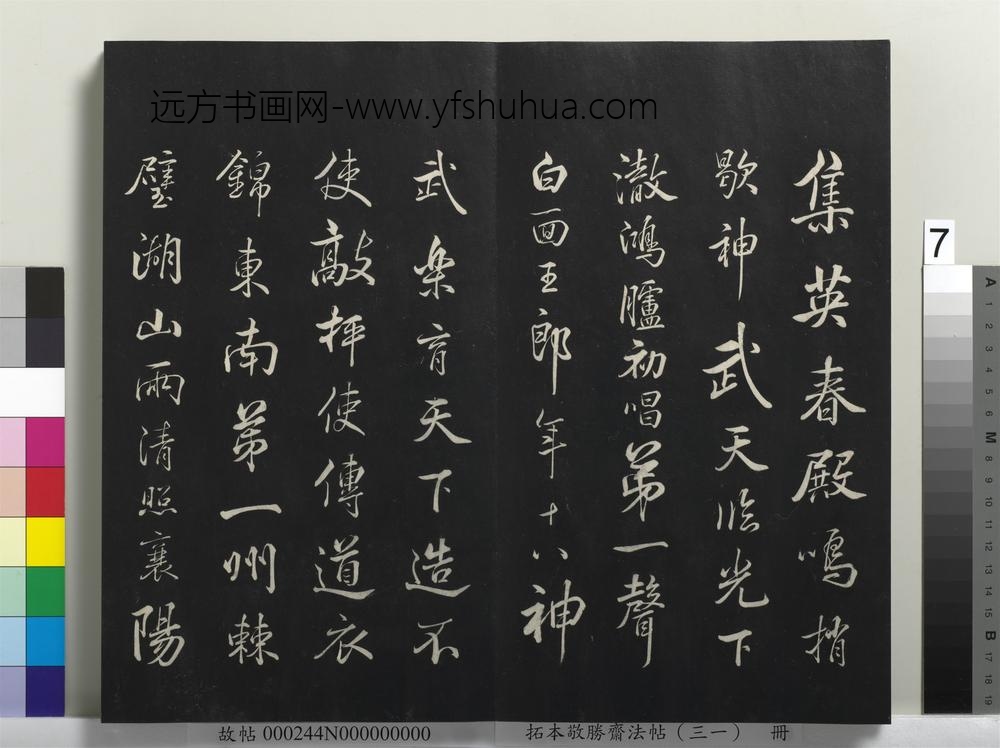 远方书画网-www.yfshuhua.com
集英春殿鳴捎
歇神武天臨光下
澈鴻臚初唱第一聲
白面王郎年十八神
武樂育天下造不
使敲抨使傳道衣
錦東南第一州棘
璧湖山兩清照襄陽
7
A
1
2
3
4
5
6
M
8
9
10
11
12
13
14
15
B
17
18
19
故帖 000244N000000000
拓本敬勝齋法帖（三一） 冊